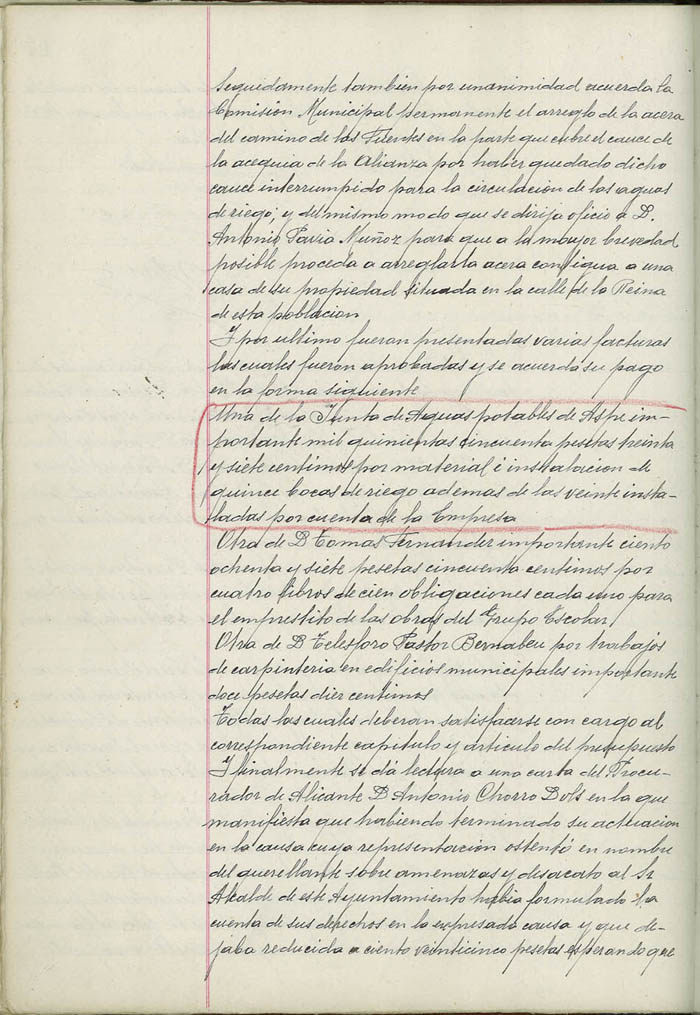 Seguidamente tambien por unanimidad acuerda la
Comisión Municipal permanente el arreglo de la acera
del camino de las Fuentes en la parte que cubre el cauce de
la acequia de la Alianza por haber quedado dicho
cauce interrumpido para la circulacion de las aguas
de riego; y del mismo modo que se dirija oficio a D.
Antonio Pavia Muñoz para que a la mayor brevedad
posible proceda a arreglar la acera contigua a una
casa de su propiedad situada en la calle de la Reina
de esta poblacion
Y por ultimo fueron presentadas varias facturas
las cuales fueron aprobadas y se acuerda su pago
en la forma siguiente
Una de la Junta de Aguas potables de Aspe im-
portante mil quinientas cincuenta pesetas treinta
y siete centimos por material é instalacion de
quince bocas de riego ademas de las veinte insta-
ladas por cuenta de la Empresa
Otra de D Tomas Fernandez importante ciento
ochenta y siete pesetas cincuenta centimos por
cuatro libros de cien obligaciones cada uno para
el emprestito de las obras del Grupo Escolar
Otra de D Telesforo Pastor Bernabeu por trabajos
de carpinteria en edificios municipales importante
doce pesetas diez centimos
Todas las cuales deberan satisfacerse con cargo al
correspondiente capitulo y articulo del presupuesto
Y finalmente se dá lectura a una carta del Procu-
rador de Alicante D Antonio Chorro Dols en la que
manifiesta que habiendo terminado su actuacion
en la causa cuya representacion ostentó en nombre
del querellante sobre amenazas y desacato al Sr
Alcalde de este Ayuntamiento habia formulado la
cuenta de sus derechos en la expresada causa y que de-
jaba reducida a ciento veinticinco pesetas esperando que